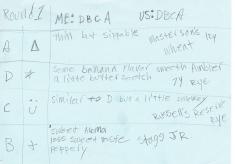 Round 1 ME: DBCA US: DBCA
A Thin but sippable Masterson's 10y
Wheat
D some banana flavor smooth Ambler
a little butterscotch 7y Rye
C similar to D but a little smokey
Russell's Reserve
Rye
B sweet Aroma
less sweet taste Stagg JR
Peppery